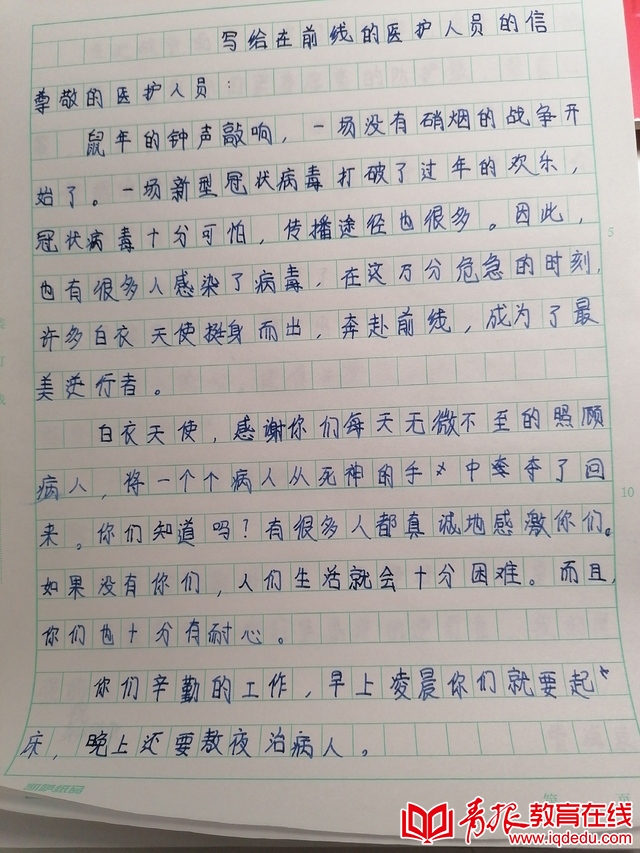 写给在前线的医护人员的信
尊敬的医护人员：
鼠年的钟声敲响，一场没有硝烟的战争开
始了。一场新型冠状病毒打破了过年的欢乐，
冠状病毒十分可怕，传播途径也很多。因此，
也有很多人感染了病毒，在这万分危急的时刻，
许多白衣天使挺身而出，奔赴前线，成为了最
美逆行者。
白衣天使，感谢你们每天无微不至的照顾
病人，将一个个病人从死神的手中夺了回
来。你们知道吗？有很多人都真诚地感激你们。
如果没有你们，人们生活就会十分困难。而且，
你们也十分有耐心。
你们辛勤的工作，早上凌晨你们就要起
床，晚上还要熬夜治病人。
5
10
青报教育在线
www.iqdedu.com